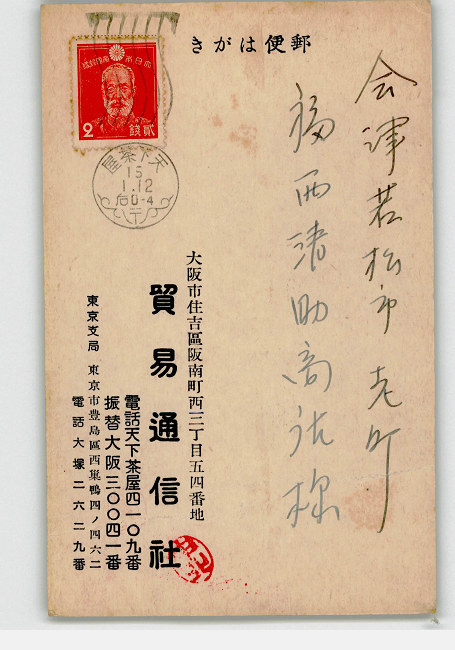 郵便はがき
大日本帝国郵便
2
貳錢
天下茶屋
15
1.12
后0-4
会津若松市
福西清助商店様
大阪市住吉區阪南町西三丁目五四番地
貿易通信社
電話天下茶屋四一〇九番
振替大阪三〇〇四一番
東京支局 東京市豊島區西巣鴨四ノ四六二
電話大塚二六二九番